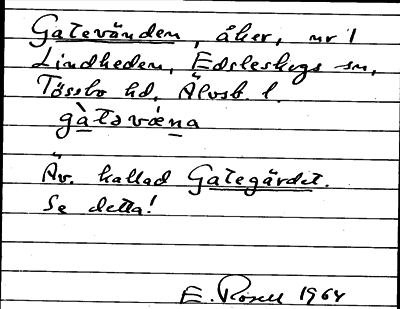 Gatevänden, åker, nr 1
Lindheden, Edsleskogs sn,
Tössbo hd, Älvsb. l.
gàtəvæ̀na
Äv. kallad Gategärdet.
Se detta!
E. Rosell 1964